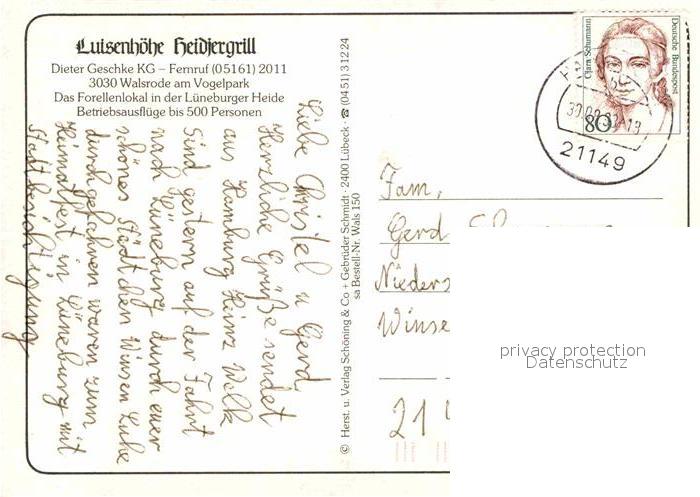 Luisenhöhe Heidjergrill
Dieter Geschke KG – Fernruf (05161) 2011
3030 Walsrode am Vogelpark
Das Forellenlokal in der Lüneburger Heide
Betriebsausflüge bis 500 Personen
Liebe Christel u Gerd
Herzliche Grüße sendet
aus Hamburg Heinz Welk
Sind gestern auf der Fahrt
nach Lüneburg durch euer
schönes Städtchen Winsen Luhe
durchgefahren waren zum
Heimatfest in Lüneburg mit
Stadtbesichtigung
© Herst. u. Verlag Schöning & Co + Gebrüder Schmidt · 2400 Lübeck · ☎ (0451) 31224
sa Bestell-Nr. Wals 150
Clara Schumann
Deutsche Bundespost
80
21149
Fam,
Gerd
Nieders
Winse
21
privacy protection
Datenschutz